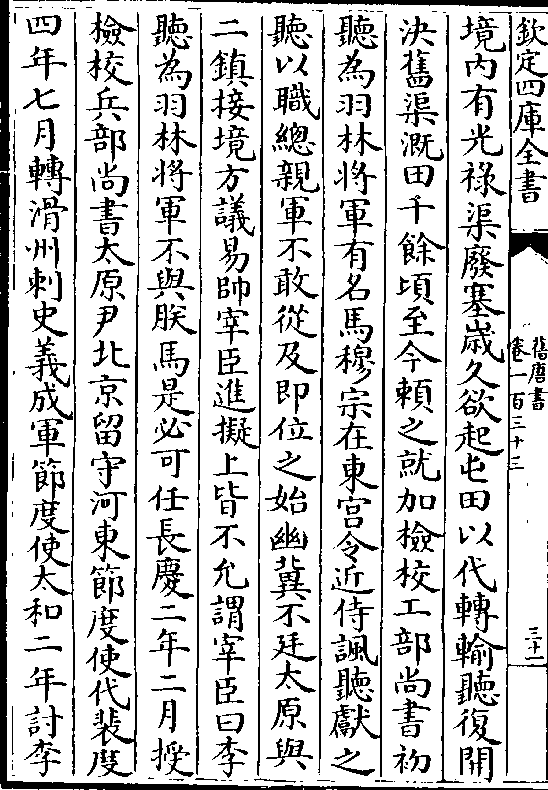 欽定四庫全書
舊唐書
卷一百三十三
三十一
境內有光祿渠廢塞嵗久欲起屯田以代轉輸聽復開
決舊渠溉田千餘頃至今賴之就加檢校工部尚書初
聽為羽林將軍有名馬穆宗在東宮令近侍諷聽獻之
聽以職總親軍不敢從及即位之始幽冀不廷太原與
二鎮接境方議易帥宰臣進擬上皆不允謂宰臣曰李
聽為羽林將軍不與朕馬是必可任長慶二年二月授
檢校兵部尚書太原尹北京留守河東節度使代裴度
四年七月轉滑州刺史義成軍節度使太和二年討李